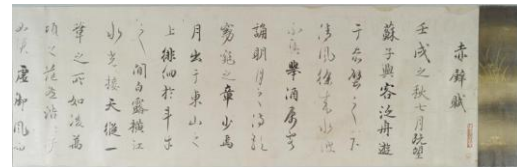 赤壁賦
壬戌之秋七月既望
蘇子與客泛舟遊
于赤壁之下
清風徐來水波
不興舉酒屬客
誦明月之詩歌
窈窕之章少焉
月出于東山之
上徘徊於斗牛
之間白露橫江
水光接天縱一
葦之所如凌萬
頃之茫然浩浩
乎如馮虛御風而